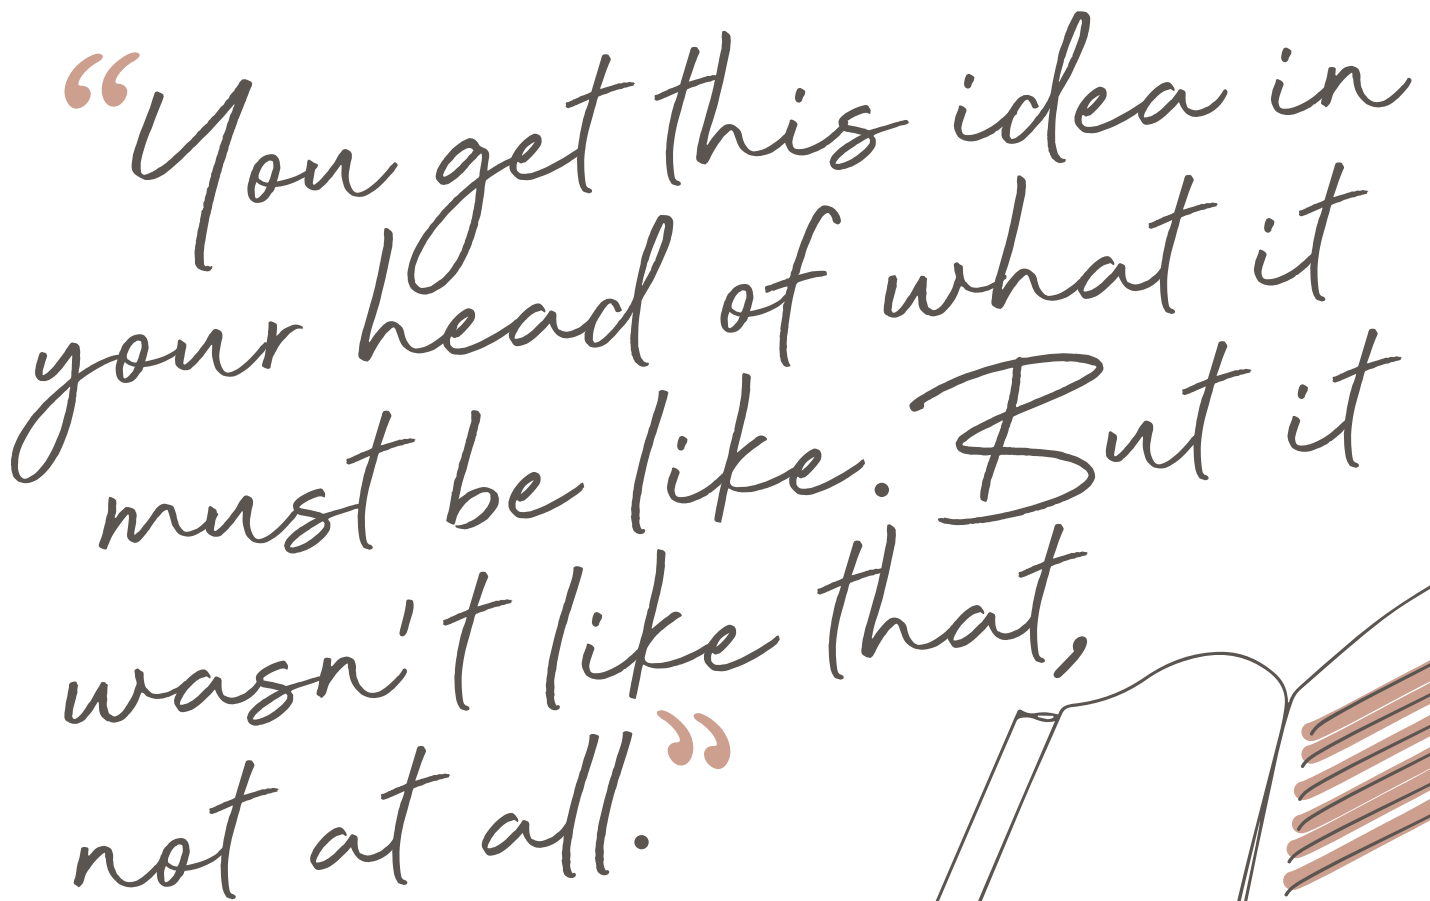 “You get this idea in
your head of what it
must be like. But it
wasn't like that,
not at all.”